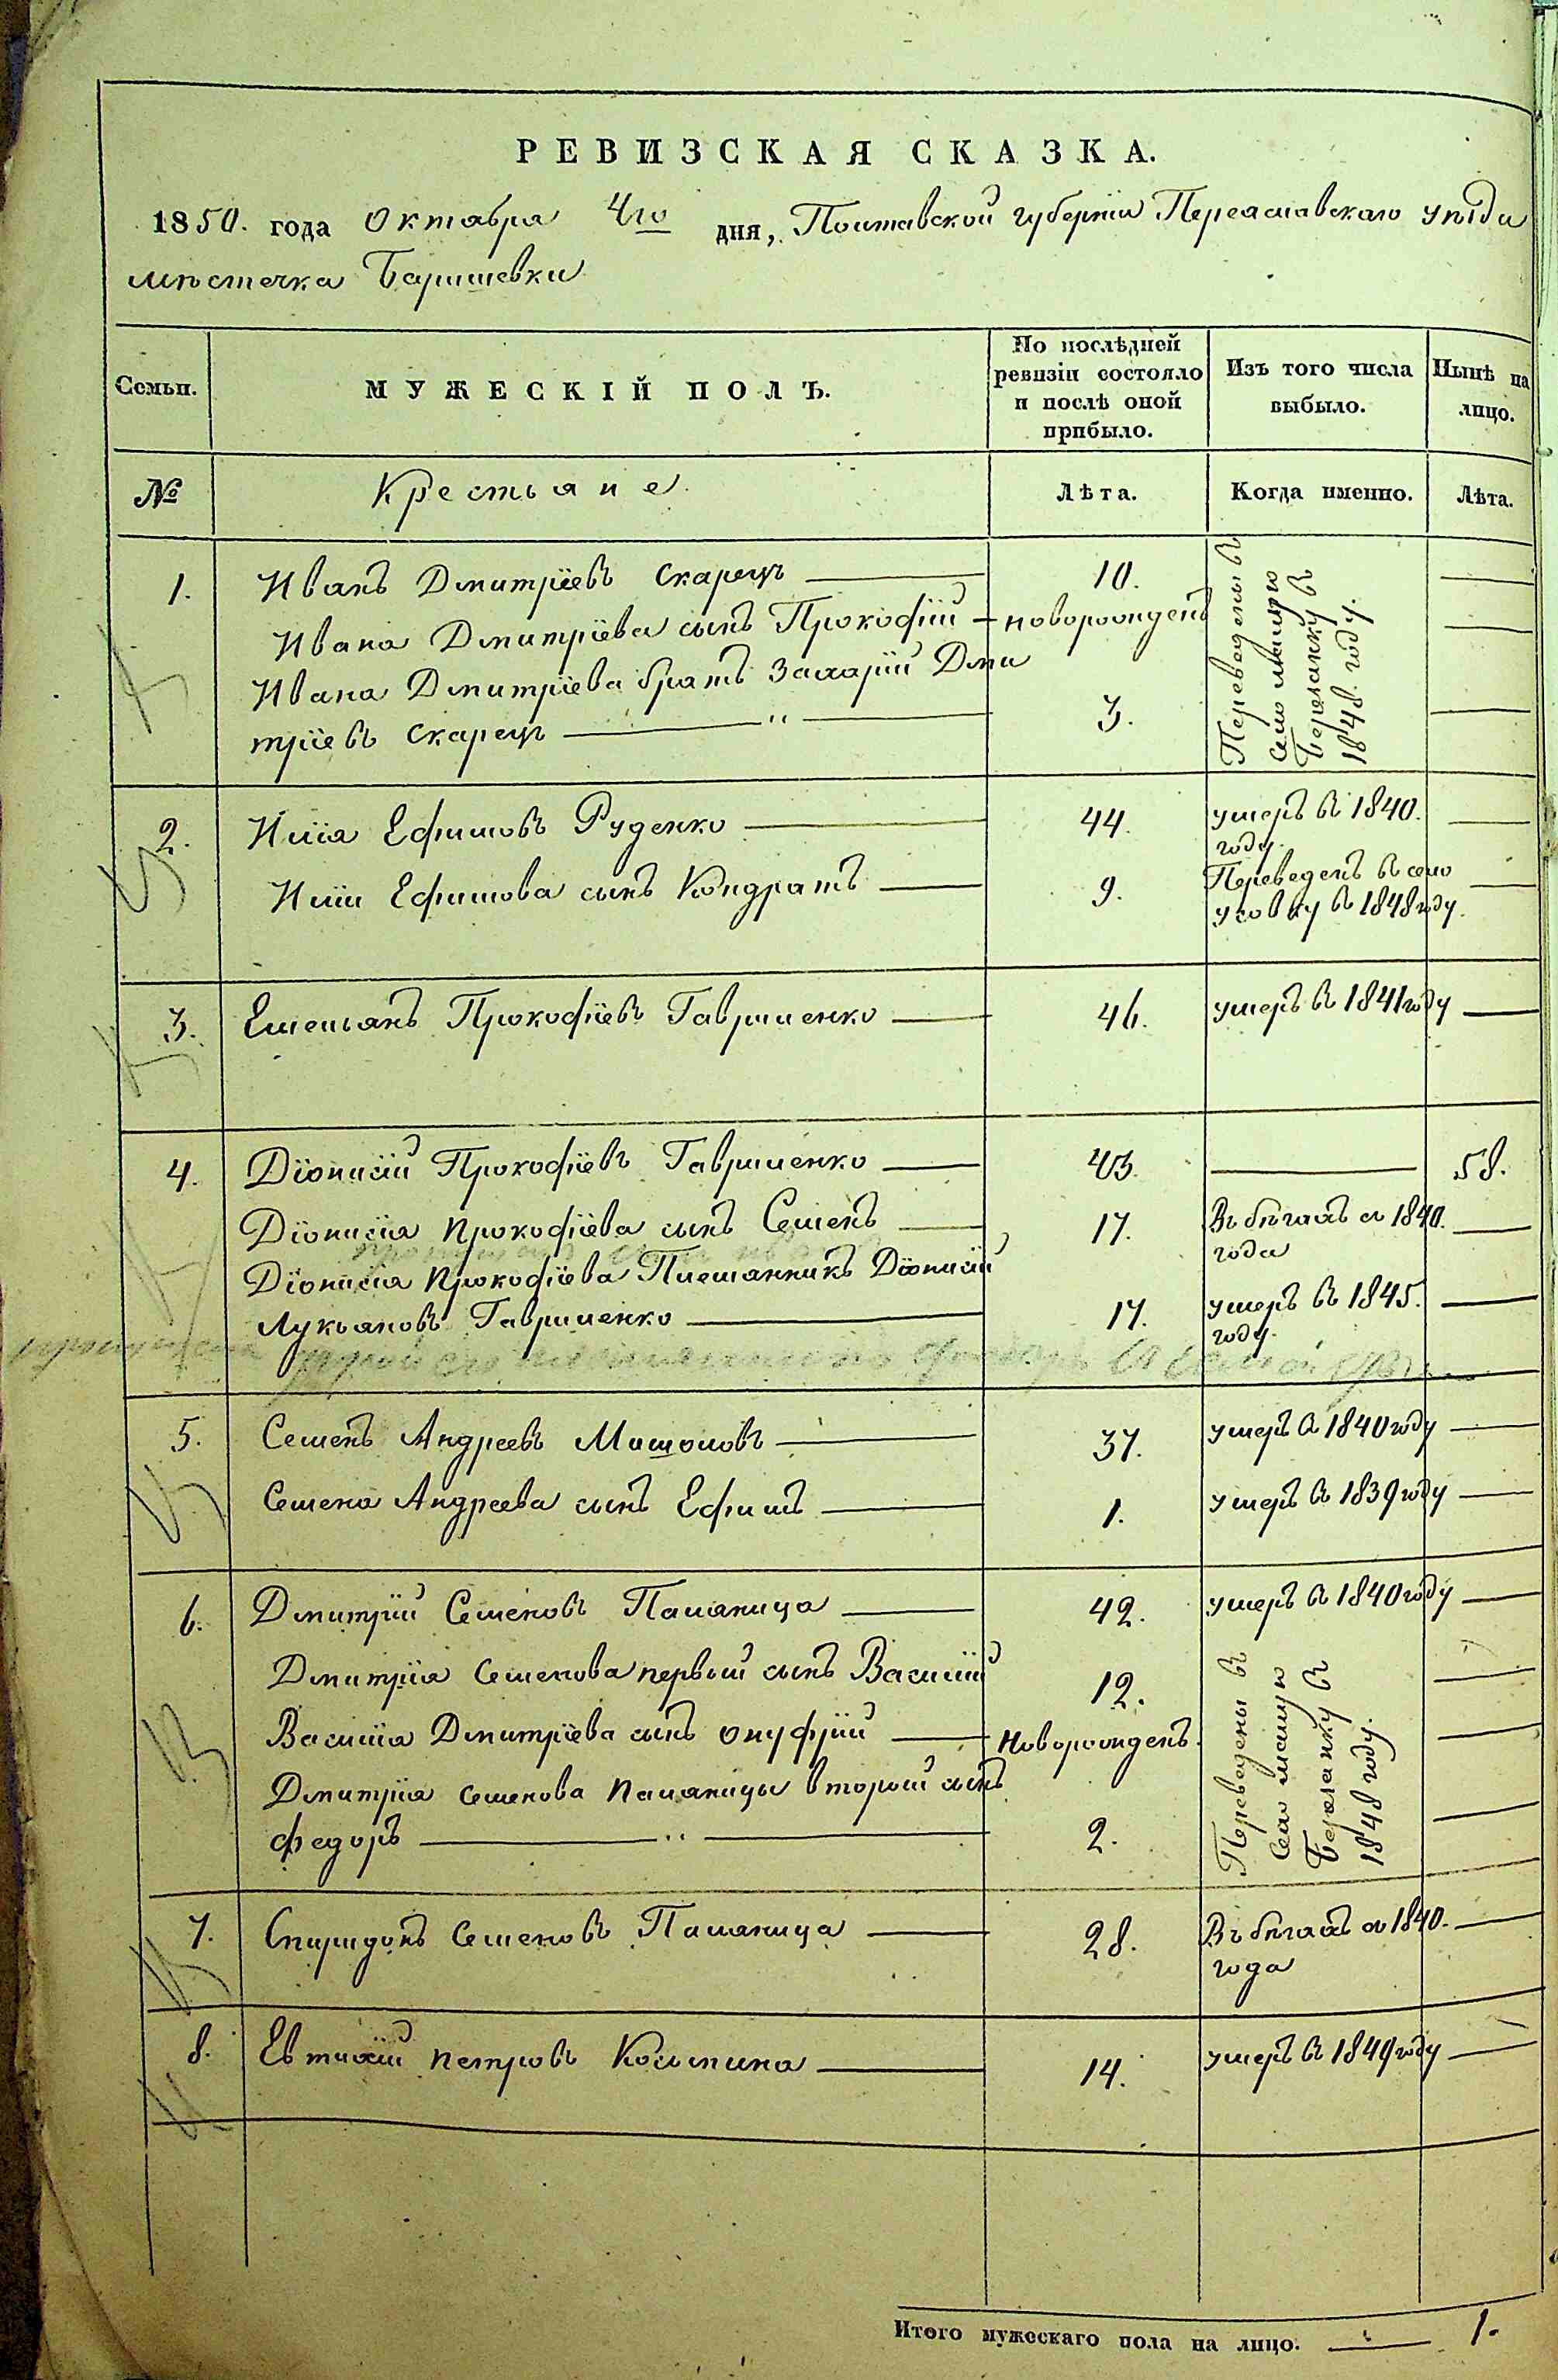 РЕВИЗСКАЯ СКАЗКА.
1850. года Октября 4го дня, Полтавской губерніи Переяславскаго уѣзда
мѣстечка Барышевки
Семьи.
МУЖЕСКІЙ ПОЛЪ.
По послѣдней ревизіи состояло и послѣ оной прибыло.
Изъ того числа выбыло.
Нынѣ на лицо.
№
Крестьяне.
Лѣта.
Когда именно.
Лѣта.
1. Иванъ Дмитріевъ Скарецъ 10.
Ивана Дмитріева сынъ Прокофій новорожденъ
Ивана Дмитріева братъ Захарій Дми
тріевъ Скарецъ „ 3.
Переведены въ
село малую
Березанку въ
1848. году.
2. Илія Ефимовъ Руденко 44. умеръ въ 1840.
году.
Иліи Ефимова сынъ Кондратъ 9. Переведенъ въ село
Усовку въ 1848 году.
3. Емельянъ Прокофіевъ Гавриленко 46. умеръ въ 1841 году
4. Діонисій Прокофіевъ Гавриленко 43. 58.
Діонисія Прокофіева сынъ Семенъ 17. Въ бѣгахъ съ 1840.
года
Діонисія Прокофіева Племянникъ Діонисій
Лукьяновъ Гавриленко 17. умеръ въ 1845.
году.
5. Семенъ Андреевъ 37. умеръ въ 1840 году
Семена Андреева сынъ Ефимъ 1. умеръ въ 1839 году
6. Дмитрій Семеновъ Паляница 42. умеръ въ 1840 году
Дмитрія Семенова первый сынъ Василій 12.
Василія Дмитріева сынъ Онуфрій Новорожденъ.
Дмитрія Семенова Паляницы второй сынъ
Федоръ „ 2.
Переведены въ
село малую
Березанку въ
1848 году.
7. Спиридонъ Семеновъ Паляница 28. Въ бѣгахъ съ 1840.
года
8. Евтихій Петровъ 14. умеръ въ 1849 году
Итого мужескаго пола на лицо. 1.